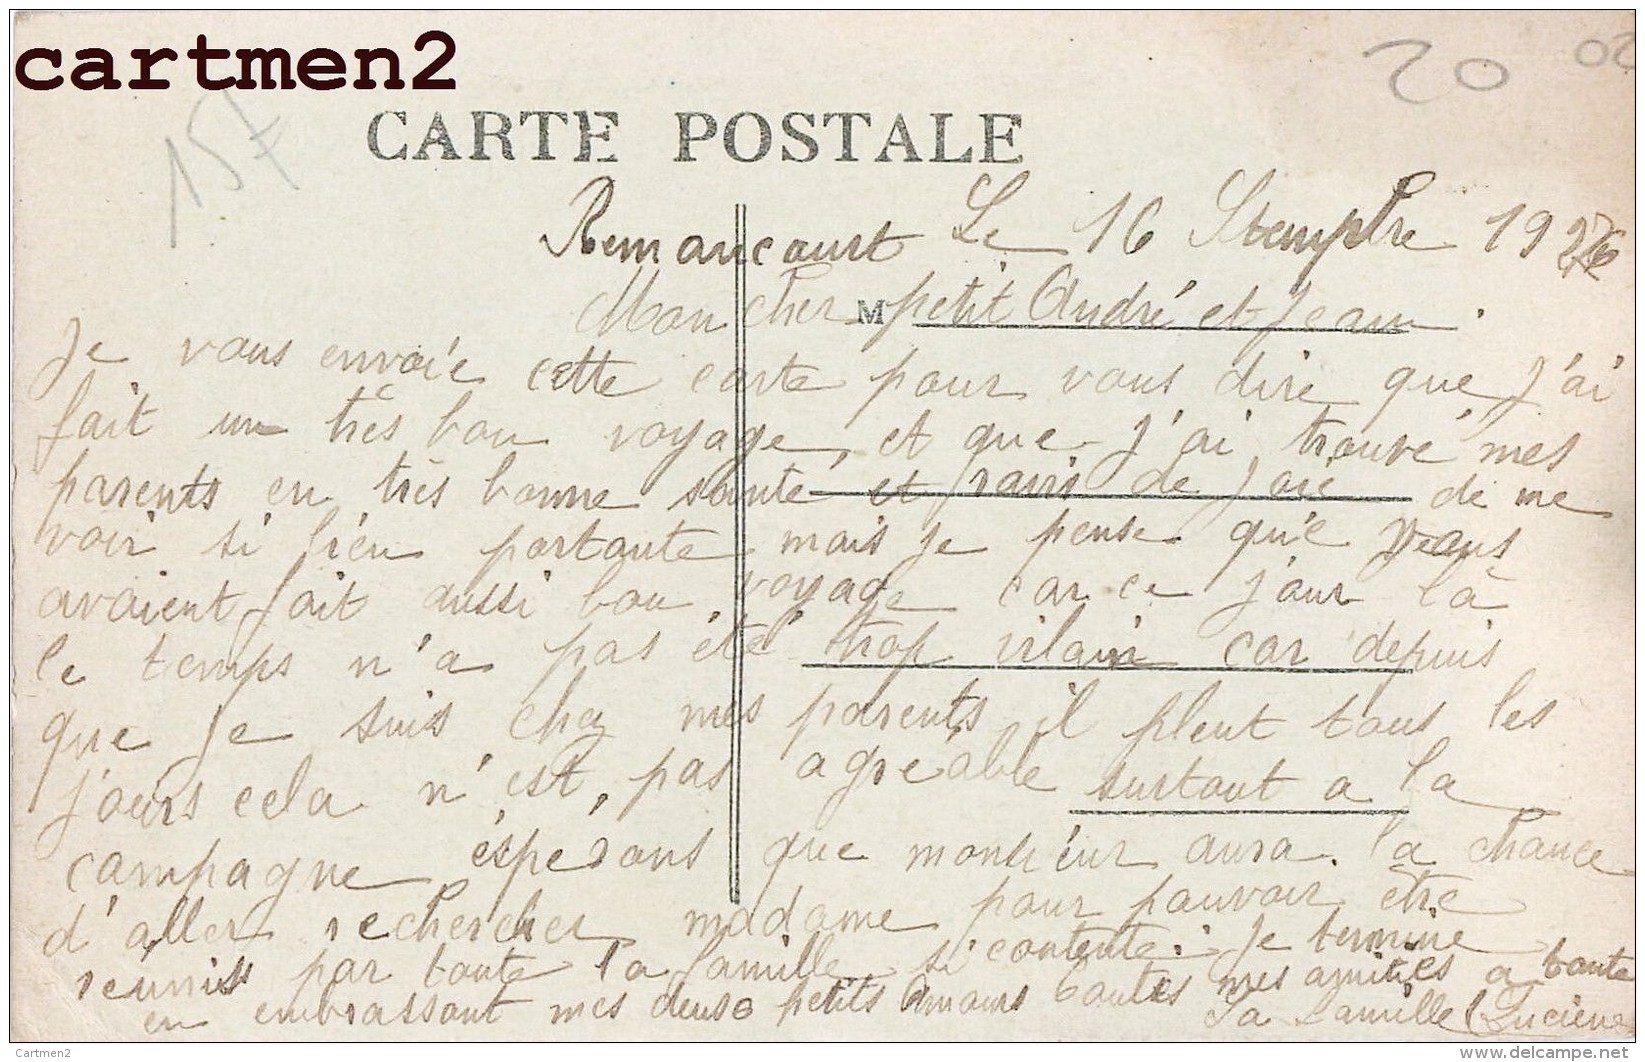 cartmen2
20
02
15F
CARTE POSTALE
Remancourt Le 16 Stempbre 1926
Mon cher M petit André et Jean.
Je vous envoie cette carte pour vous dire que J'ai
fait un très bon voyage, et que J'ai trouvé mes
parents en très bonne santé et ravis de Joie de me
voir si bien portante mais Je pense qu'e vous
avaient fait aussi bon voyage car ce Jour là
le temps n'a pas été trop vilain car depuis
que Je suis chez mes parents il pleut tous les
Jours cela n'est pas agréable surtout a la
campagne éspérons que monsieur aura la chance
d'aller rechercher madame pour pouvoir être
réunis par toute la famille si contente. Je termine
en embrassant mes deux petits amours toutes mes amitiés a toute
La famille Lucienne
Cartmen2
delcampe.net